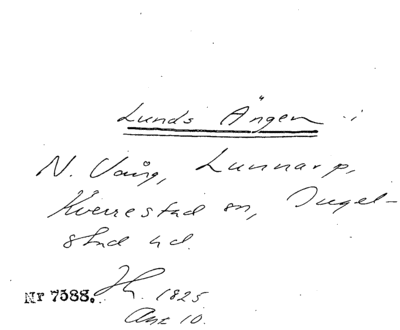 Lunds Ängen i
N. Vång, Lunnarp,
Hverrestad sn, Ingel-
stad hd.
Nr 7588. 1825
Anz 10.